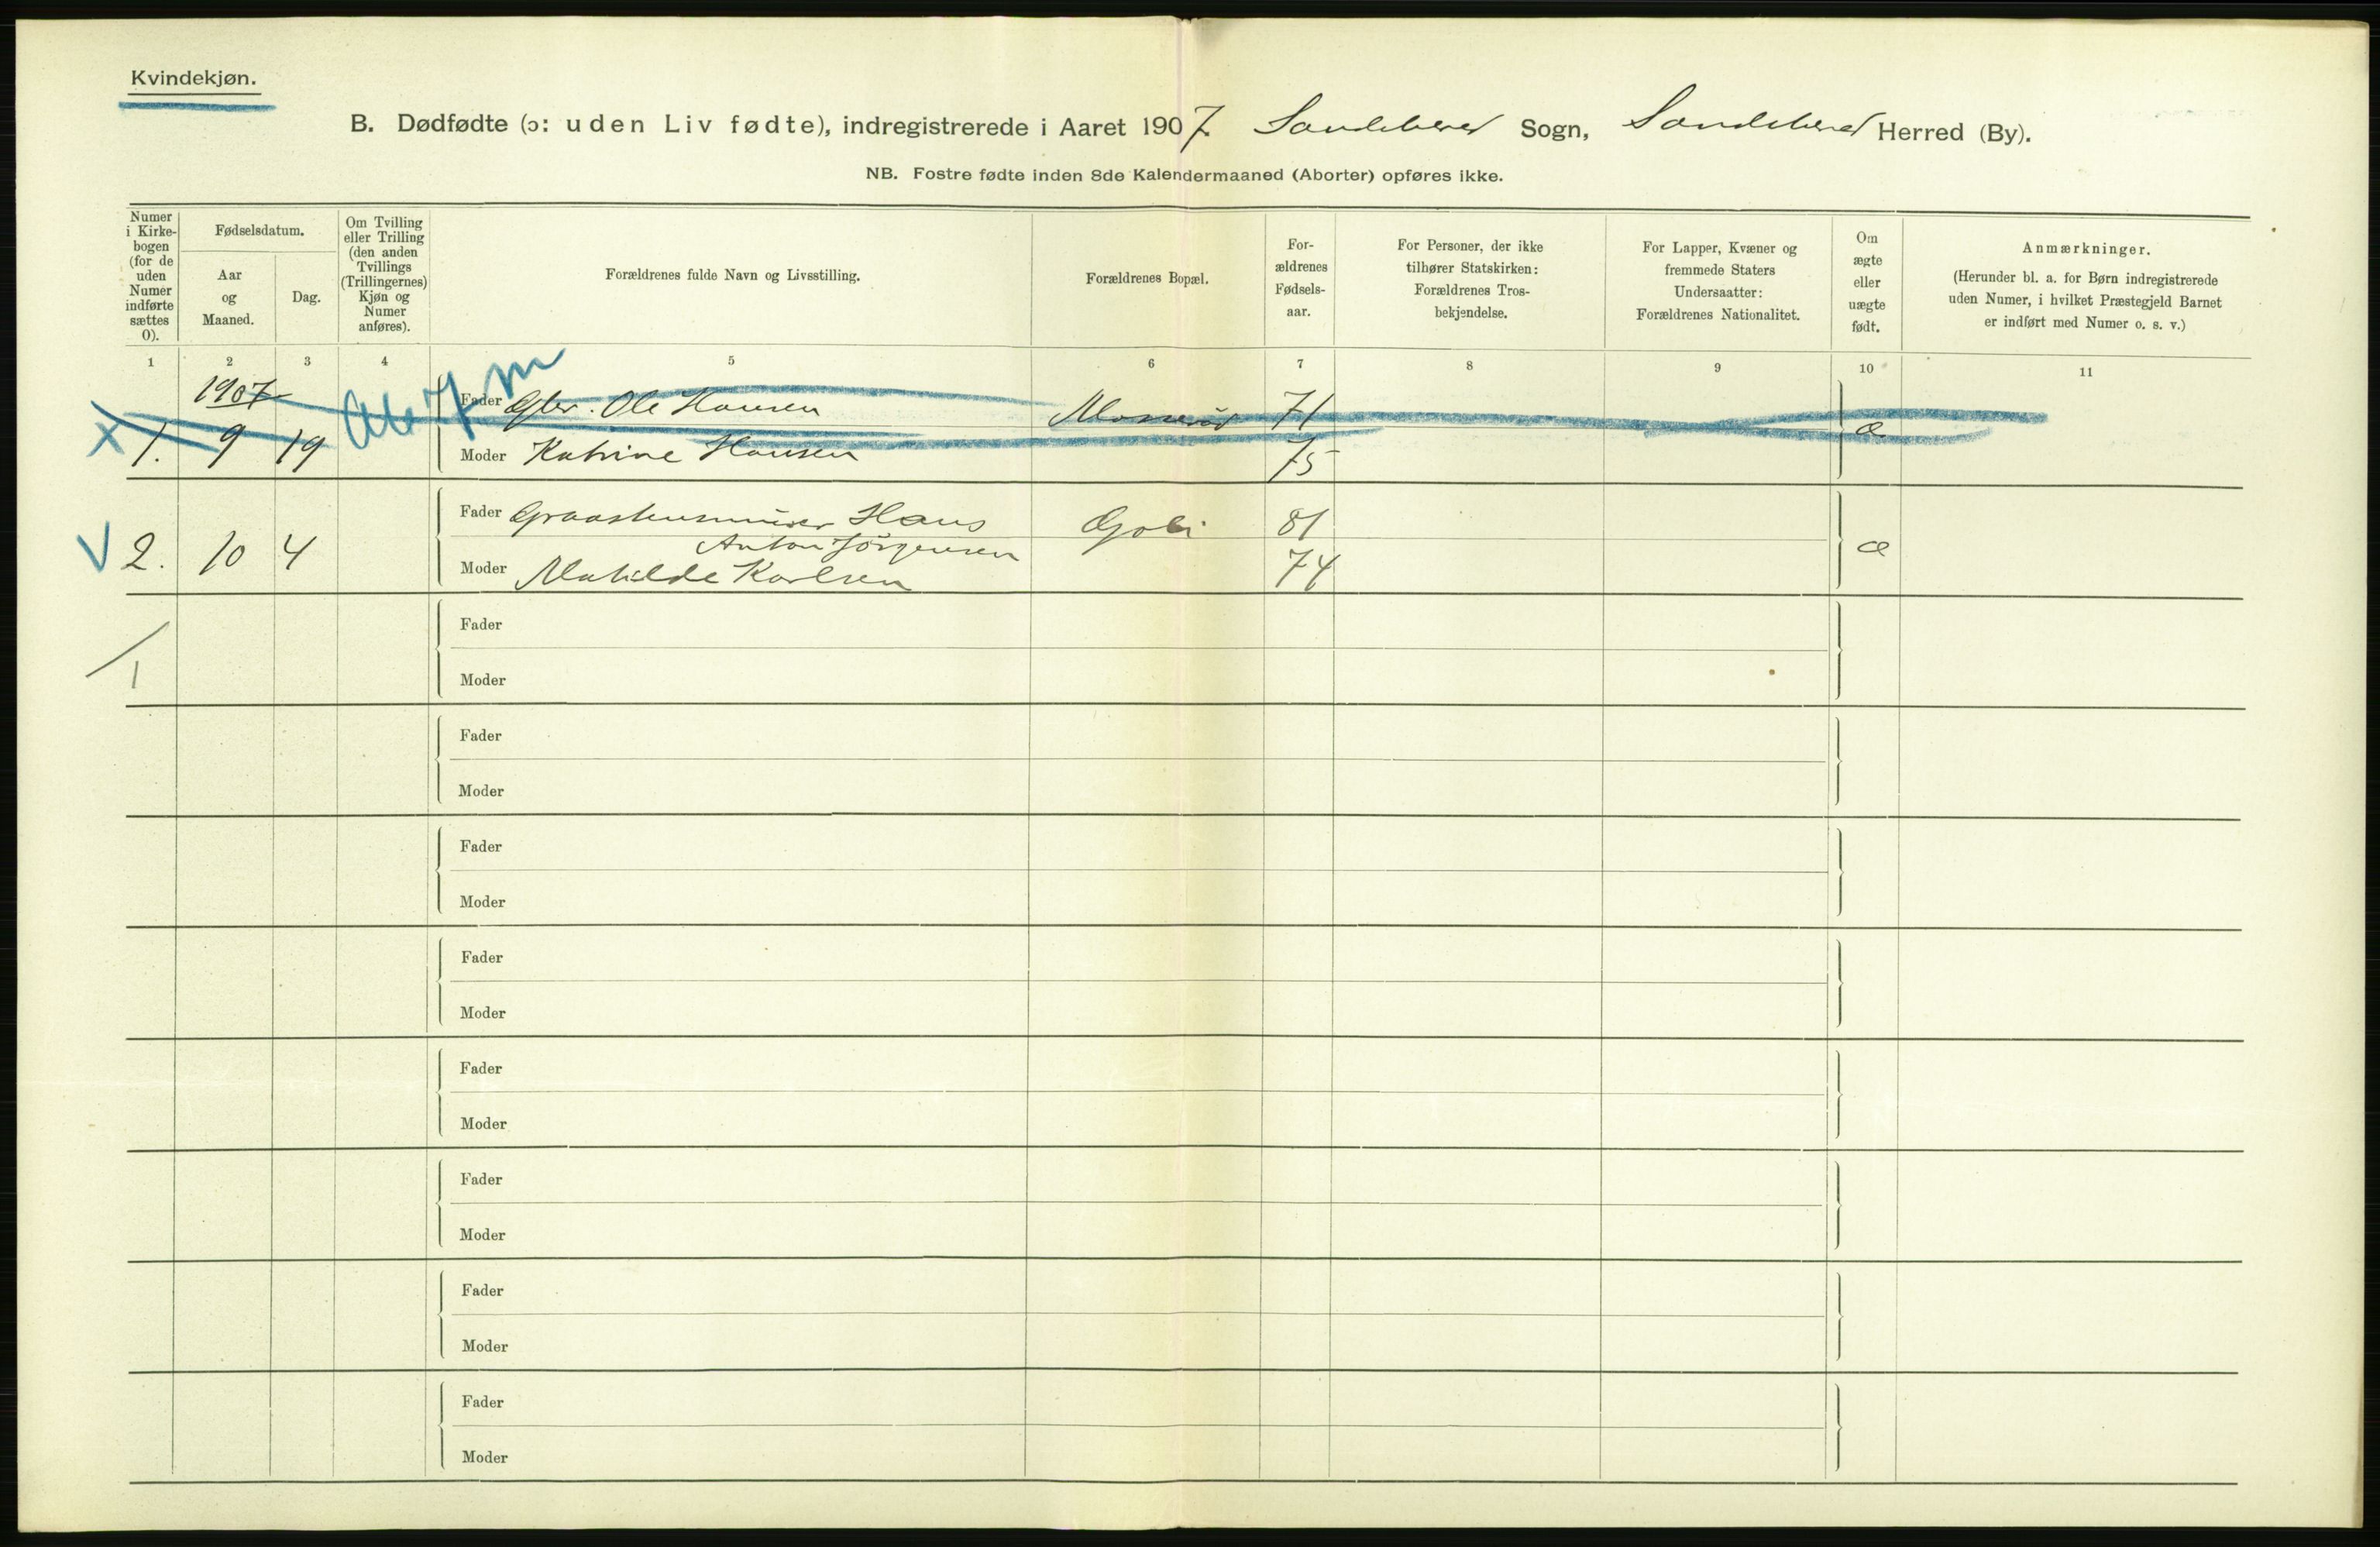 Kvindekjøn.
B. Dødfødte (ɔ: uden Liv fødte), indregistrerede i Aaret 1907 Sandeherred Sogn, Sandeherred Herred (By).
NB. Fostre fødte inden 8de Kalendermaaned (Aborter) opføres ikke.
Numer i Kirkebogen (for de uden Numer indførte sættes 0).
Fødselsdatum.
Aar og Maaned.
Dag.
Om Tvilling eller Trilling (den anden Tvillings (Trillingernes) Kjøn og Numer anføres).
Forældrenes fulde Navn og Livsstilling.
Forældrenes Bopæl.
Forældrenes Fødselsaar.
For Personer, der ikke tilhører Statskirken: Forældrenes Trosbekjendelse.
For Lapper, Kvæner og fremmede Staters Undersaatter: Forældrenes Nationalitet.
Om ægte eller uægte født.
Anmærkninger.
(Herunder bl. a. for Børn indregistrerede uden Numer, i hvilket Præstegjeld Barnet er indført med Numer o. s. v.)
1 2 3 4 5 6 7 8 9 10 11
1907
Fader Ole Hansen 71
1. 9 19 æ
Moder Katrine Hansen 75
Fader Hans Gobi 81
Anton Jörgensen
2. 10 4 æ
Moder Matilde Karlsen 74
Fader
1
Moder
Fader
Moder
Fader
Moder
Fader
Moder
Fader
Moder
Fader
Moder
Fader
Moder
Fader
Moder